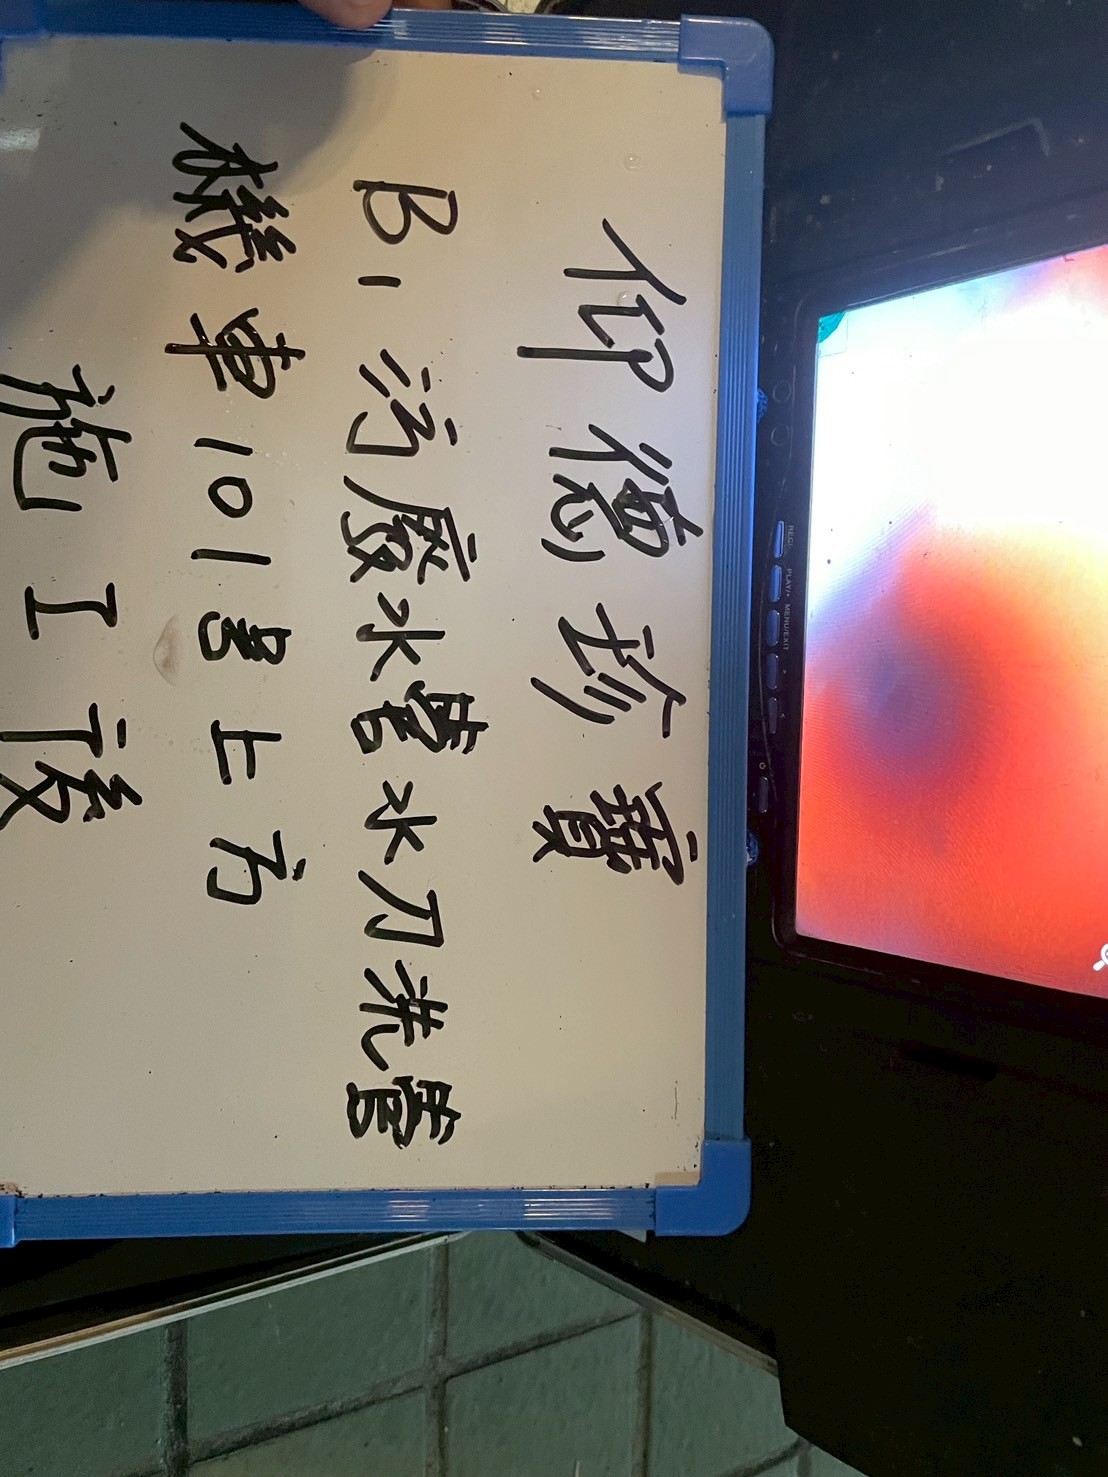 仰德珍寶
B1污廢水管水刀洗管
機車101號上方
施工後
MENU/EXIT